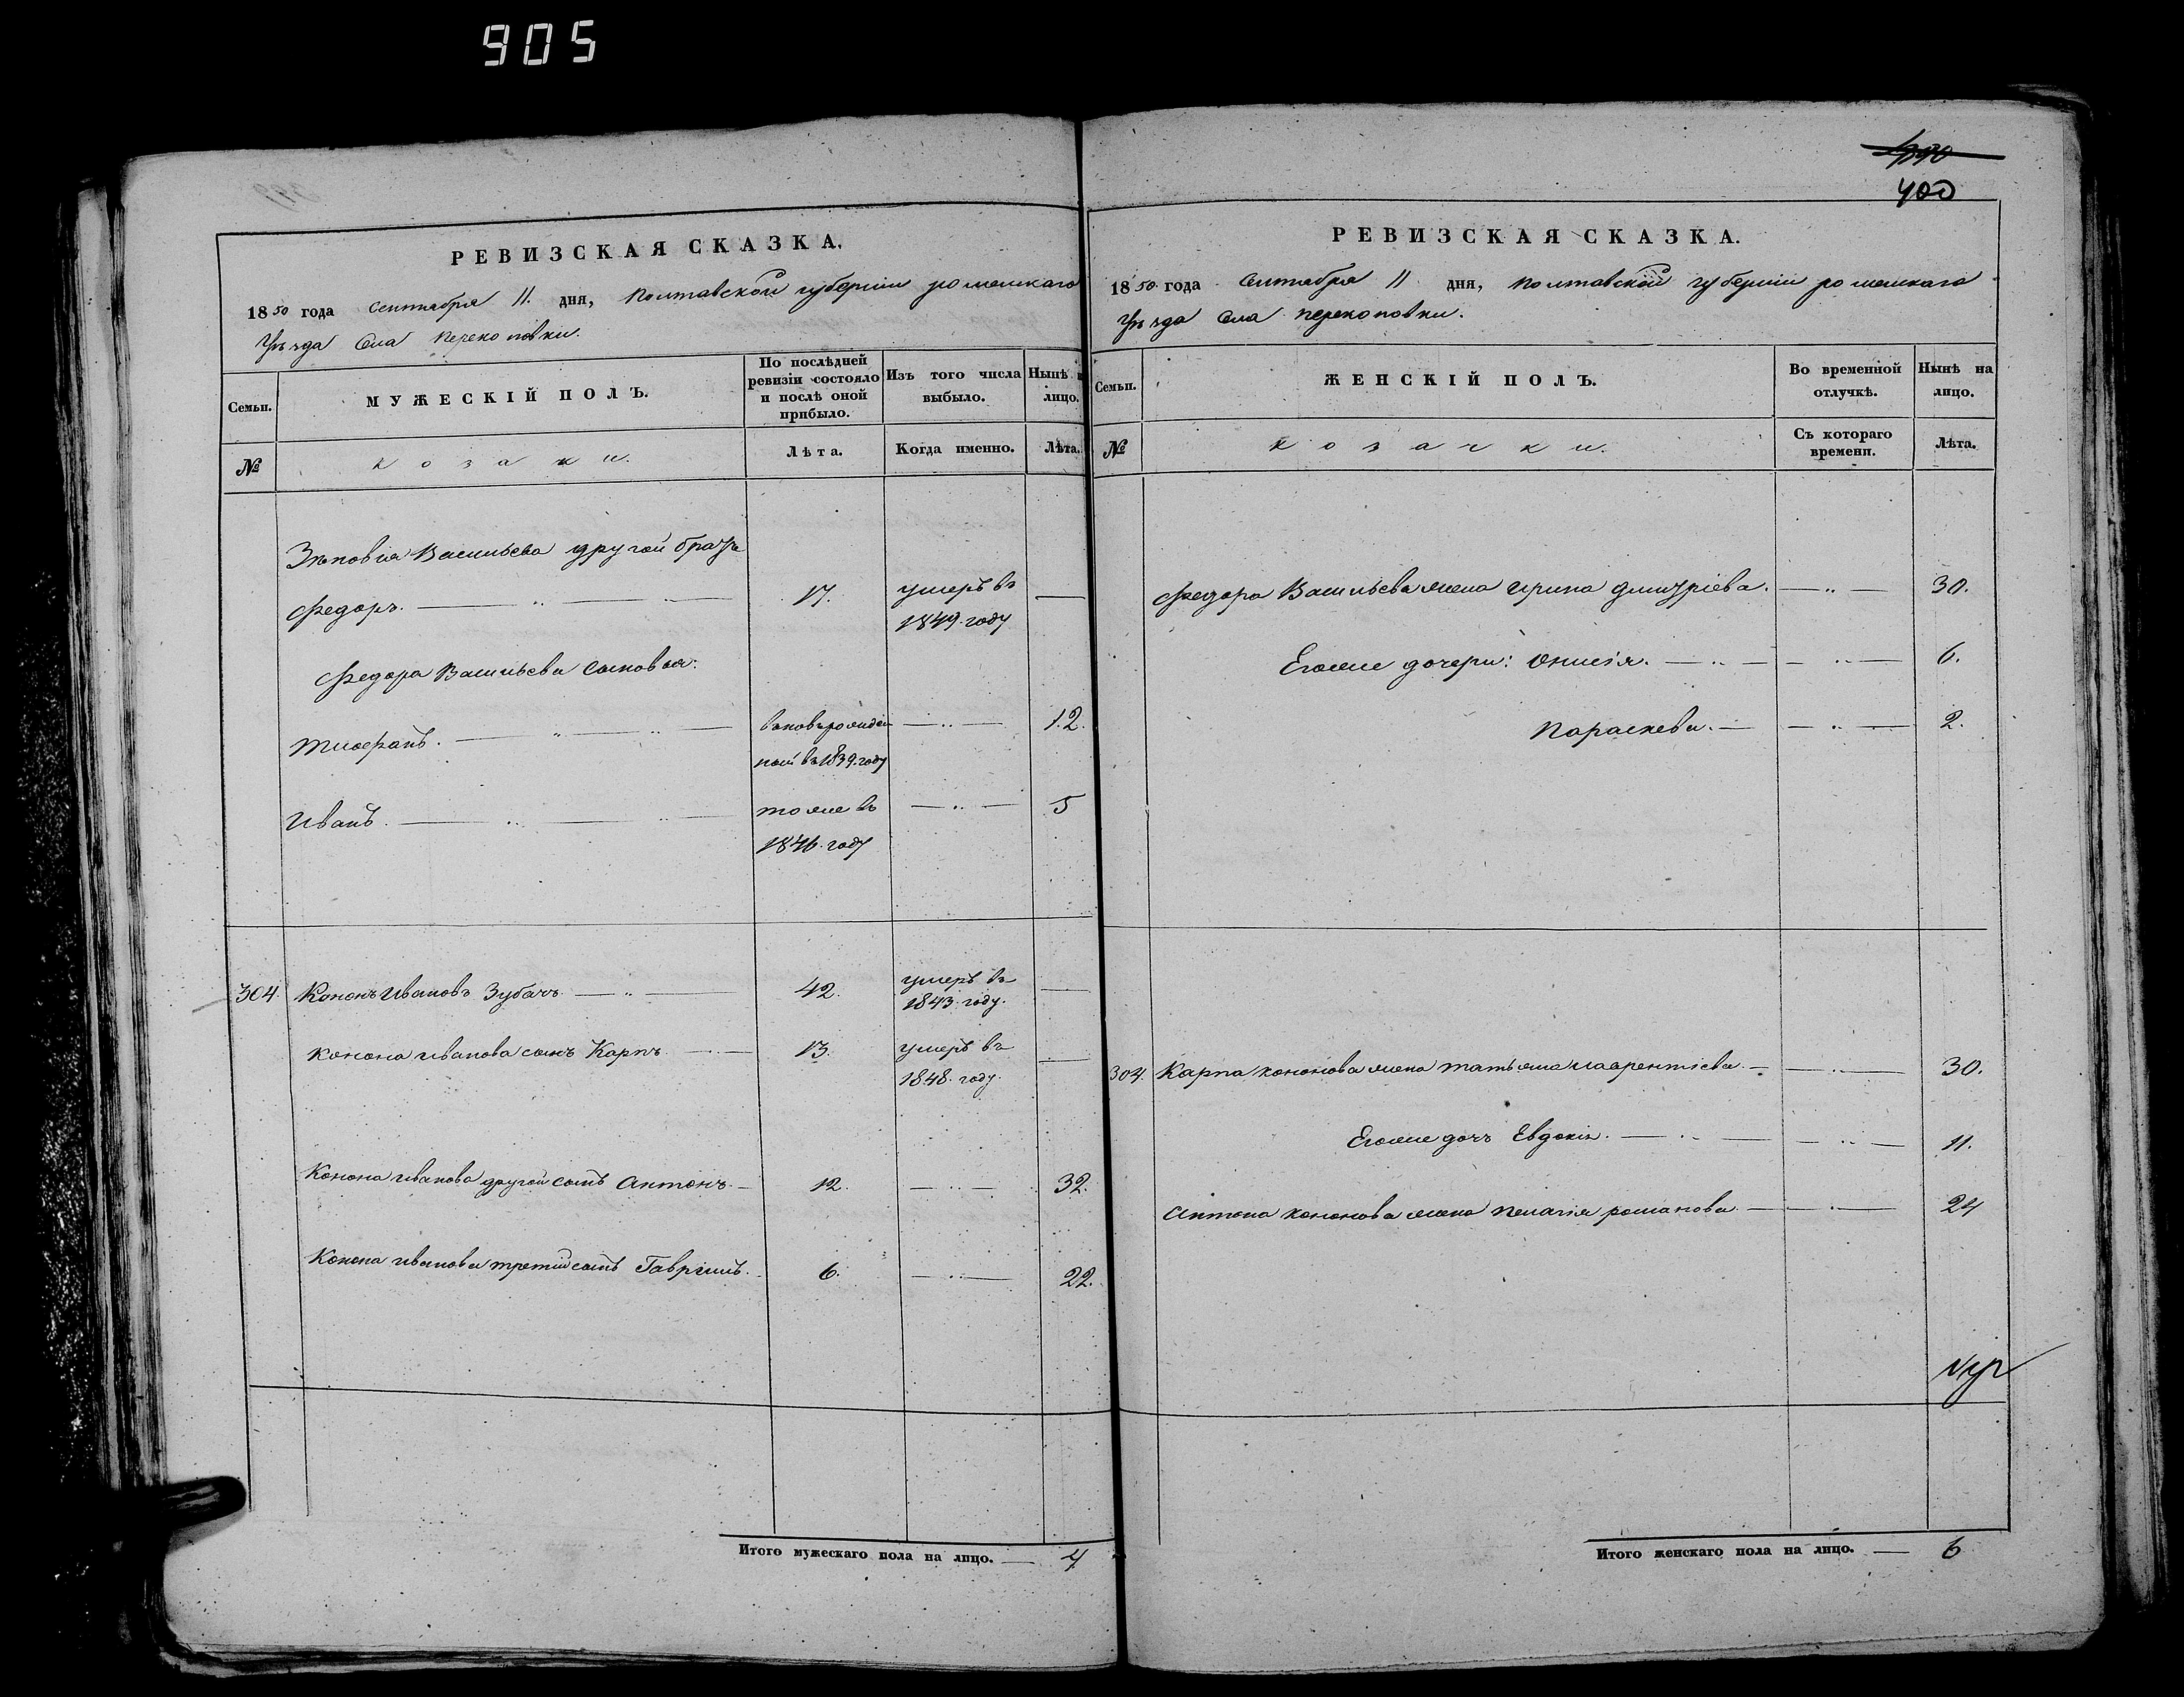 905
390
400
РЕВИЗСКАЯ СКАЗКА.
1850 года Сентября 11. дня, Полтавской губерніи роменскаго
Уѣзда Села Перекоповки.
Семьи.
МУЖЕСКІЙ ПОЛЪ.
По послѣдней
ревизіи состояло
и послѣ оной
прибыло.
Изъ того числа
выбыло.
Нынѣ
лицо.
№
козаки.
Лѣта.
Когда именно.
Лѣта.
Зѣновія Васильева другой братъ
Федоръ. 17. умеръ въ
1849. году
Федора Васильева сыновья:
Тимофей. вновьрожден
ной въ 1839. году 12.
Иванъ. тоже въ 5
1846. году
304. Кононъ Ивановъ Зубачъ 42. умеръ въ
1843. году.
Конона Иванова сынъ Карпъ 13. умеръ въ
1848. году.
Конона Иванова другой сынъ Антонъ. 12. 32.
Конона Иванова третій сынъ Гавріилъ. 6. 22.
Итого мужескаго пола на лицо. 4
РЕВИЗСКАЯ СКАЗКА.
1850 года Сентября 11 дня, Полтавской губерніи роменскаго
Уѣзда Села Перекоповки.
Семьи.
ЖЕНСКІЙ ПОЛЪ.
Во временной
отлучкѣ.
Нынѣ на
лицо.
№
козачки.
Съ котораго
времени.
Лѣта.
Федора Васильева жена Ирина Дмитріева. 30.
Егоже дочери: Онисія. 6.
Параскева. 2.
304. Карпа Кононова жена Татьяна Лаврентіева. 30.
Егоже дочь Евдокія. 11.
Антона Кононова жена Пелагія Романова. 24
Итого женскаго пола на лицо. 6